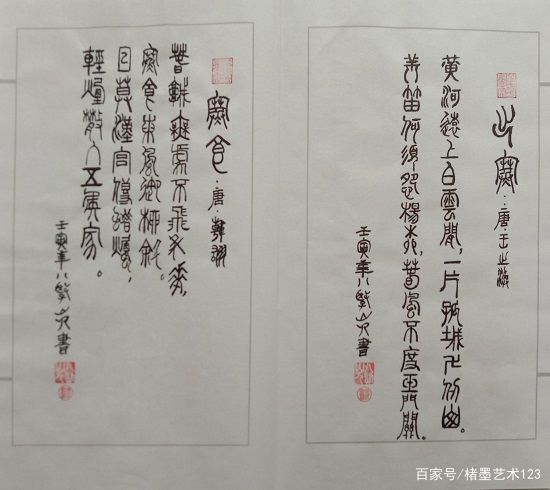 出塞·唐·王之渙
黃河遠上白雲間,一片孤城万仞山。
羌笛何須怨楊柳,春風不度玉門關。
壬寅年八書
寒食·唐·韓翃
春城無處不飛花,
寒食東風御柳斜。
日莫漢宮傳蠟燭,
輕煙散入五侯家。
壬寅年八書
百家号/楮墨艺术123